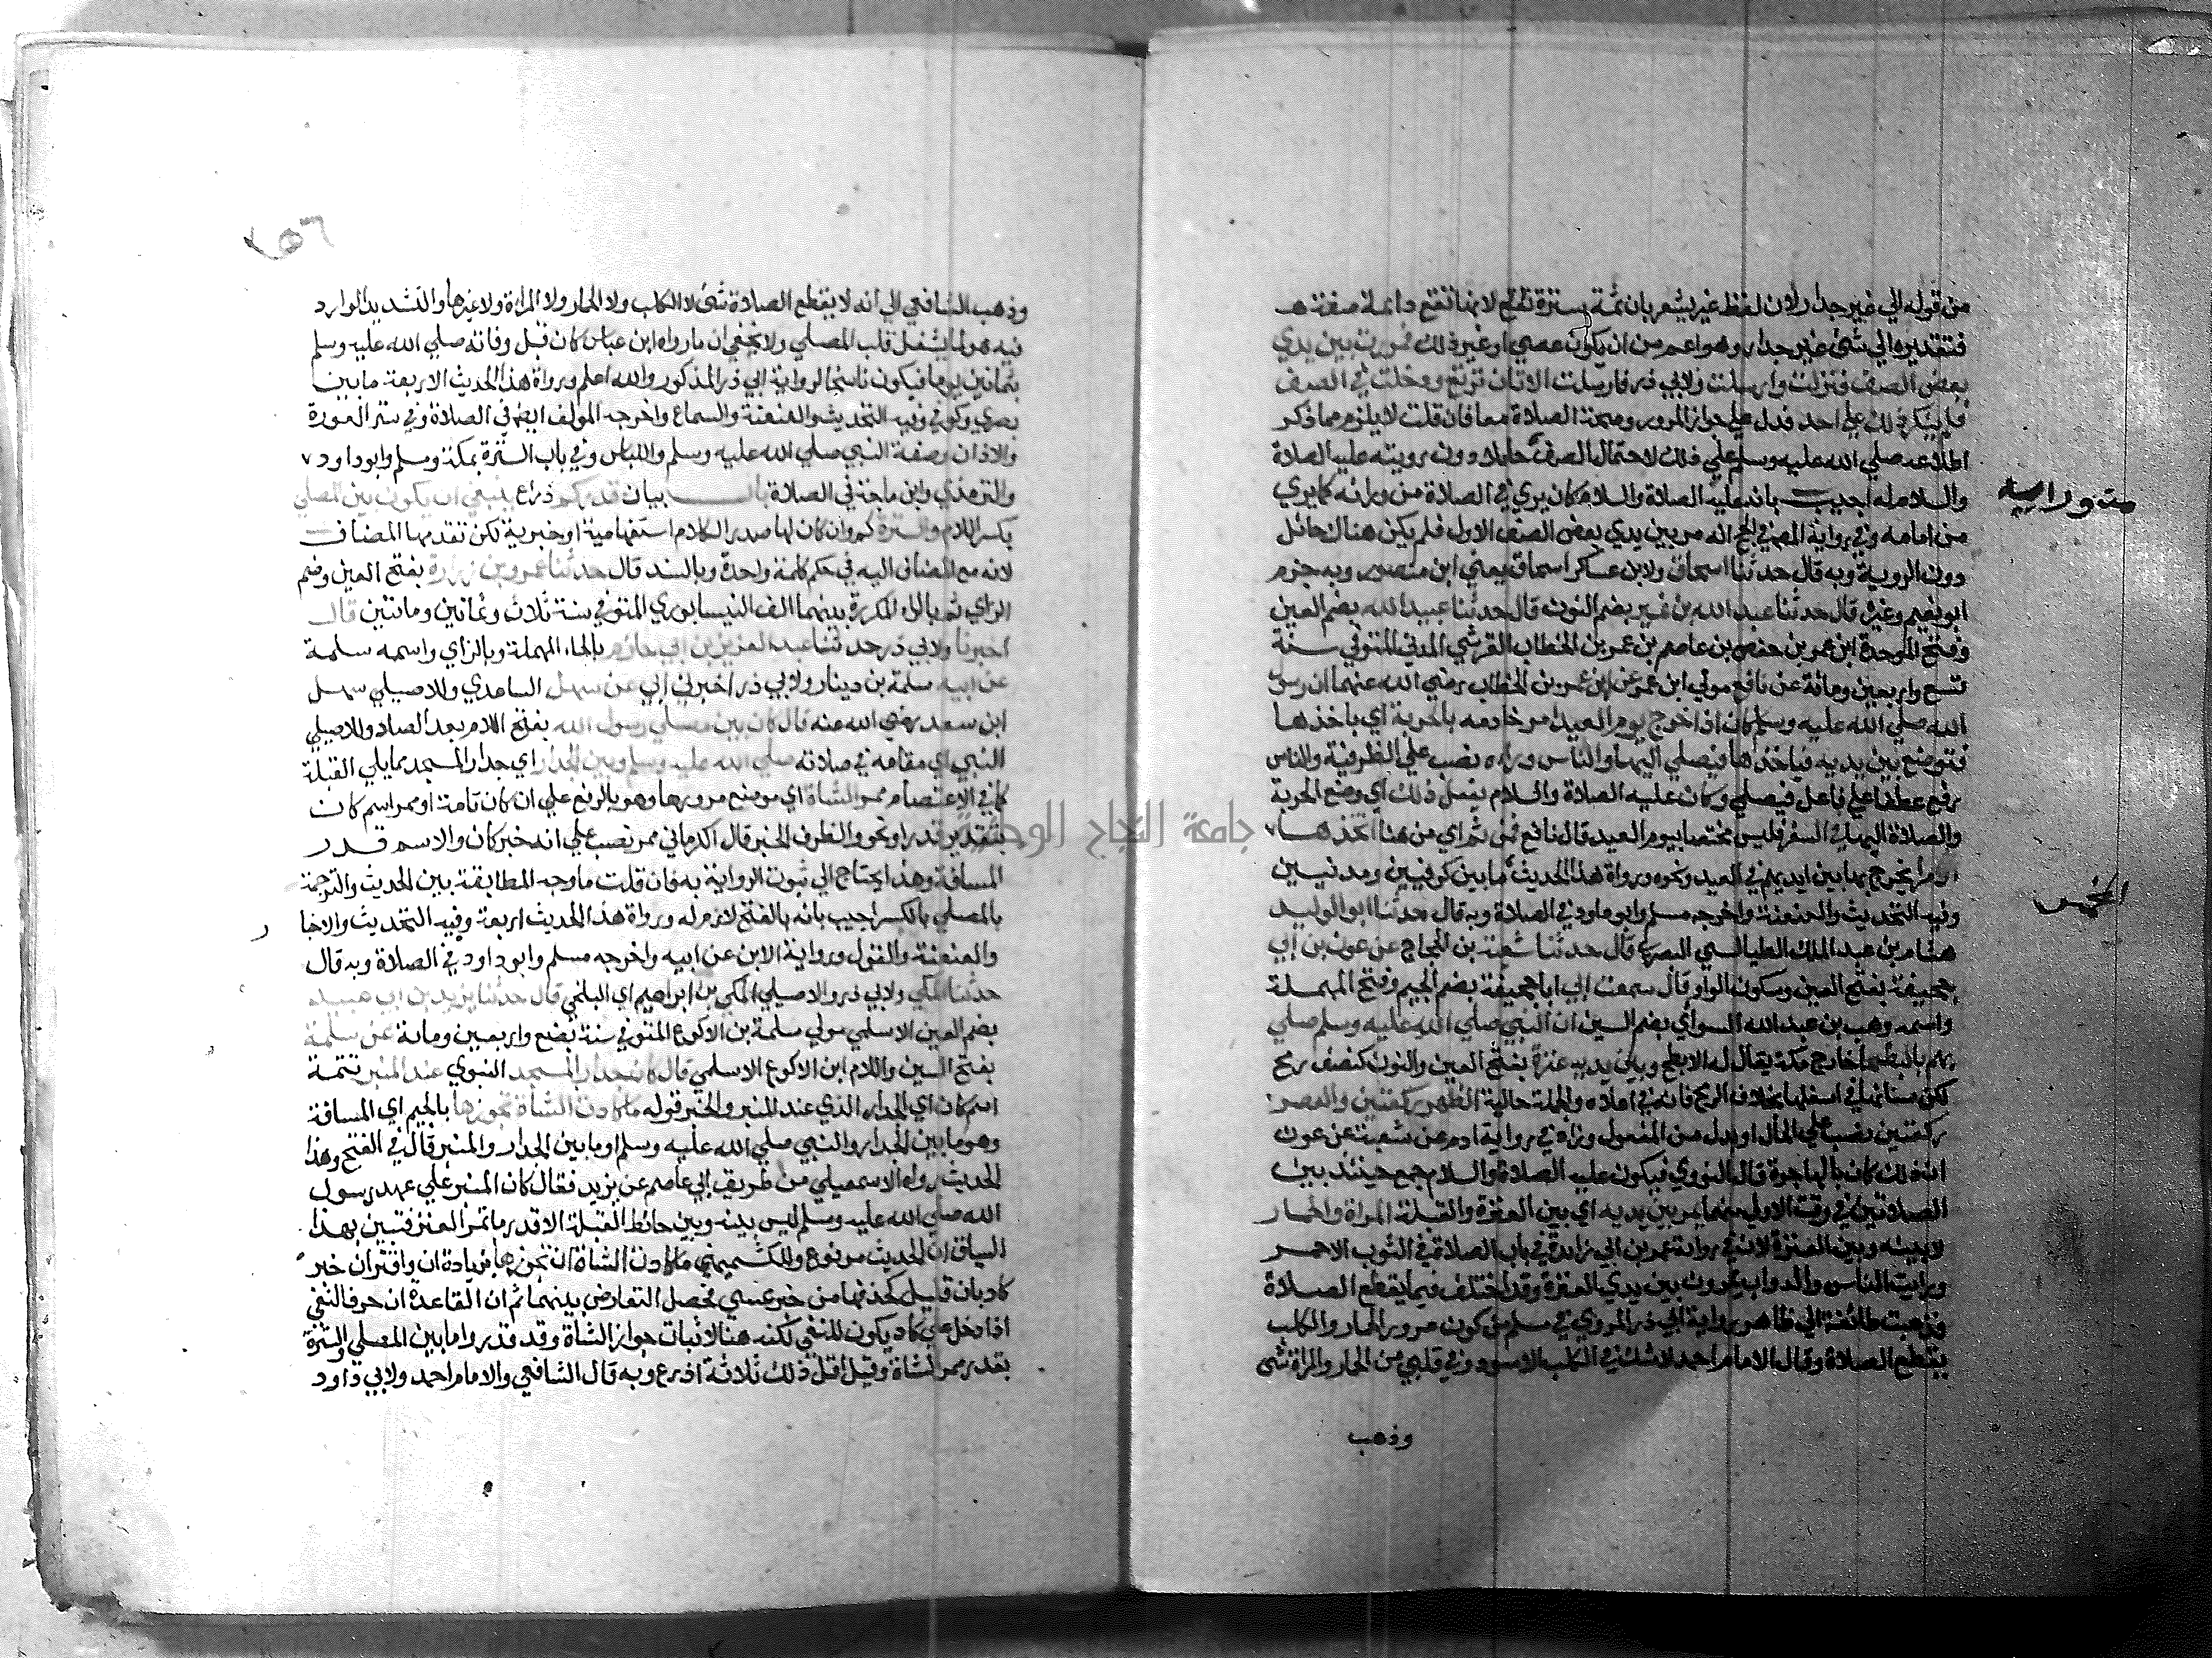 من قوله الي غير جدار لان لفظ غير يشعر بان ثمة سترة تقع لانها تقع دايمة صفة
فتقديره الي شئ غير جدار وهو اعم من ان يكون عصي او غير ذلك فمررت بين يدي
بعض الصف فنزلت وارسلت ولابي ذر فارسلت الاتان ترتع ودخلت في الصف
فلم ينكر ذلك علي احد فدل علي جواز المرور وصحة الصلاة معا فان قلت لا يلزم مما ذكر
اطلاعه صلي الله عليه وسلم علي ذلك لاحتمال الصف حايلا دون رويته عليه الصلاة
والسلام له اجيب بانه عليه الصلاة والسلام كان يري في الصلاة من ورائه كما يري
من امامه وفي رواية المصنف في الحج انه مر بين يدي بعض الصف الاول فلم يكن هناك حائل
دون الروية وبه قال حدثنا اسحاق ولابن عساكر اسحاق يعني ابن منصور وبه جزم
ابو نعيم وغيره قال حدثنا عبد الله بن نمير بضم النون قال حدثنا عبيد الله بضم العين
وفتح الموحدة ابن عمر بن حفص بن عاصم بن عمر بن الخطاب القرشي المدني المتوفي سنة
تسع واربعين ومائة عن نافع مولي ابن عمر عن ابن عمر بن الخطاب رضي الله عنهما ان رسول
الله صلي الله عليه وسلم كان اذا خرج يوم العيد امر خادمه بالحربة اي باخذها
فتوضع بين يديه فياخذها فيصلي اليها والناس وراءه نصب علي الظرفية والناس
رفع عطفا علي فاعل فيصلي وكان عليه الصلاة والسلام يفعل ذلك اي وضع الحربة
والصلاة اليها في السفر فليس مختصا بيوم العيد قال نافع فمن ثم اي من هنا اتخذها
الامرا يخرج بها بين ايديهم في العيد ونحوه ورواة هذا الحديث ما بين كوفيين ومدنيين
وفيه التحديث والعنعنة واخرجه مسلم وابو داود في الصلاة وبه قال حدثنا ابو الوليد
هشام بن عبد الملك الطيالسي البصري قال حدثنا شعبة بن الحجاج عن عون بن ابي
جحيفة بفتح العين وسكون الواو قال سمعت ابي ابا جحيفة بضم الجيم وفتح المهملة
واسمه وهب بن عبد الله السوائي بضم السين ان النبي صلي الله عليه وسلم صلي
بهم بالبطحا خارج مكة يقال له الابطح وبين يديه عنزة بفتح العين والنون كنصف رمح
لكن سنانها في اسفلها بخلاف الرمح فانه في اعلاه والجملة حالية الظهر ركعتين والعصر
ركعتين نصب علي الحال او بدل من المفعول وزاد في رواية ادم عن شعبة عن عون
ان ذلك كان بالهاجرة قال النووي فيكون عليه الصلاة والسلام جمع حينئذ بين
الصلاتين في وقت الاولي منهما يمر بين يديه اي بين العنزة والقبلة المراة والحمار
لا بينه وبين العنزة لان في رواية عمر بن ابي زائدة في باب الصلاة في الثوب الاحمر
ورايت الناس والدواب يمرون بين يدي العنزة وقد اختلف فيما يقطع الصلاة
فذهبت طائفة الي ظاهر رواية ابي ذر المروي في مسلم من كون مرور الحمار والكلب
يقطع الصلاة وقال الامام احمد لا شك في الكلب الاسود وفي قلبي من الحمار والمراة شئ
وذهب
وذهب الشافعي الي انه لا يقطع الصلاة شئ لا الكلب ولا الحمار ولا المراة ولا غيرها والتشديد الوارد
فيه هو لما يشغل قلب المصلي ولا يخفي ان ما رواه ابن عباس كان قبل وفاته صلي الله عليه وسلم
بثمانين يوما فيكون ناسخا لرواية ابي ذر المذكور والله اعلم ورواة هذا الحديث الاربعة ما بين
بصري وكوفي وفيه التحديث والعنعنة والسماع واخرجه المولف ايضا في الصلاة وفي ستر العورة
والاذان وصفة النبي صلي الله عليه وسلم واللباس وفي باب السترة بمكة ومسلم وابو داود
والترمذي وابن ماجة في الصلاة باب بيان قدر كم ذراع ينبغي ان يكون بين المصلي
بكسر اللام والسترة كم وان كان لها صدر الكلام استفهامية او خبرية لكن تقدمها المضاف
لانه مع المضاف اليه في حكم كلمة واحدة وبالسند قال حدثنا عمرو بن زرارة بفتح العين وضم
الزاي ثم بالراء المكررة بينهما الف النيسابوري المتوفي سنة ثلاث وثمانين ومائتين قال
اخبرنا ولابي ذر حدثنا عبد العزيز بن ابي حازم بالحاء المهملة وبالزاي واسمه سلمة
عن ابيه سلمة بن دينار ولابي ذر اخبرني ابي عن سهل الساعدي وللاصيلي سهل
ابن سعد رضي الله عنه قال كان بين مصلي رسول الله بفتح اللام بعد الصاد وللاصيلي
النبي اي مقامه في صلاته صلي الله عليه وسلم وبين الجدار اي جدار المسجد مما يلي القبلة
كما في الاعتصام ممر الشاة اي موضع مرورها وهو بالرفع علي ان كان تامة او ممر اسم كان
بتقدير قدر او نحو والظرف الخبر قال الكرماني ممر نصب علي انه خبر كان والاسم قدر
المسافة وهذا يحتاج الي ثبوت الرواية به فان قلت ما وجه المطابقة بين الحديث والترجمة
بالمصلي بالكسر اجيب بانه بالفتح لازم له ورواة هذا الحديث اربعة وفيه التحديث والاخبا
ر
والعنعنة والقول ورواية الابن عن ابيه واخرجه مسلم وابو داود في الصلاة وبه قال
حدثنا المكي ولابي ذر والاصيلي المكي بن ابراهيم اي البلخي قال حدثنا يزيد بن ابي عبيد
بضم العين الاسلمي مولي سلمة بن الاكوع المتوفي سنة بضع واربعين ومائة عن سلمة
بفتح السين واللام ابن الاكوع الاسلمي قال كان جدار المسجد النبوي عند المنبر تتمة
اسم كان اي الجدار الذي عند المنبر والخبر قوله ما كادت الشاة تجوزها بالجيم اي المسافة
وهو ما بين الجدار والنبي صلي الله عليه وسلم او ما بين الجدار والمنبر قال في الفتح وهذا
الحديث رواه الاسمعيلي من طريق ابي عاصم عن يزيد فقال كان المنبر علي عهد رسول
الله صلي الله عليه وسلم ليس بينه وبين حائط القبلة الا قدر ما تمر العنز فتبين بهذا
السياق ان الحديث مرفوع وللكشميهني ما كادت الشاة ان تجوزها بزيادة ان واقتران خبر
كاد بان قليل كحذفها من خبر عسي فحصل التعارض بينهما ثم ان القاعدة ان حرف النفي
اذا دخل علي كاد يكون للنفي لكنه هنا لاثبات جواز الشاة وقد قدروا ما بين المصلي والسترة
بقدر ممر الشاة وقيل اقل ذلك ثلاثة اذرع وبه قال الشافعي والامام احمد ولابي داود